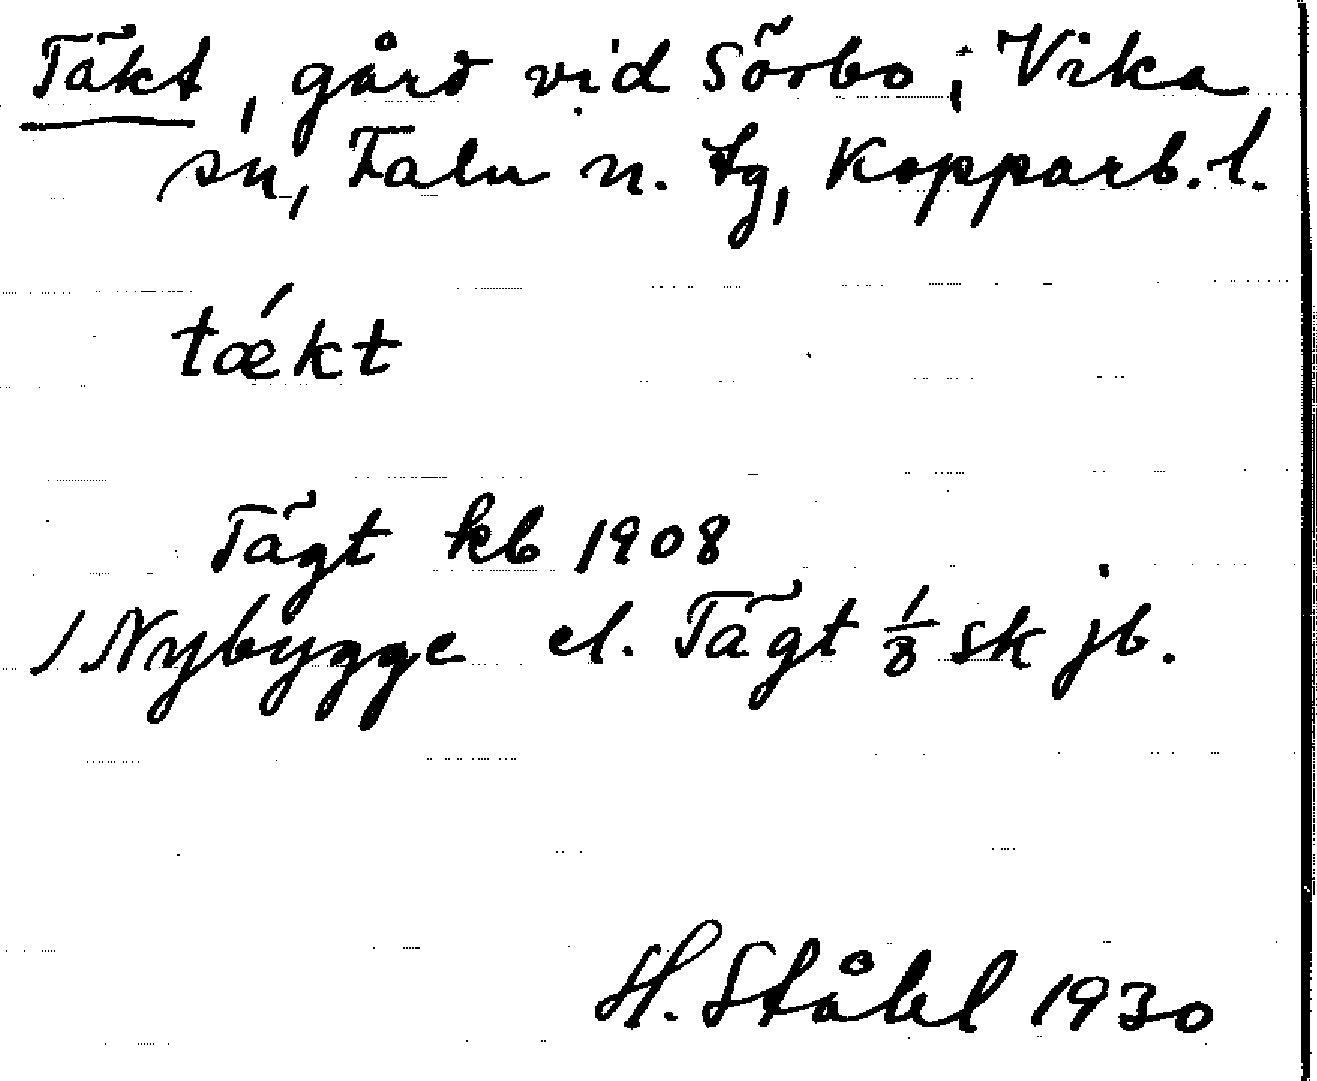 Täkt, gård vid Sörbo, Vika
sn, Falu n. tg, Kopparb. l.
tǽkt
Tägt kb 1908
Nybygge el. Tägt 1/8 sk jb.
H. Ståhl 1930